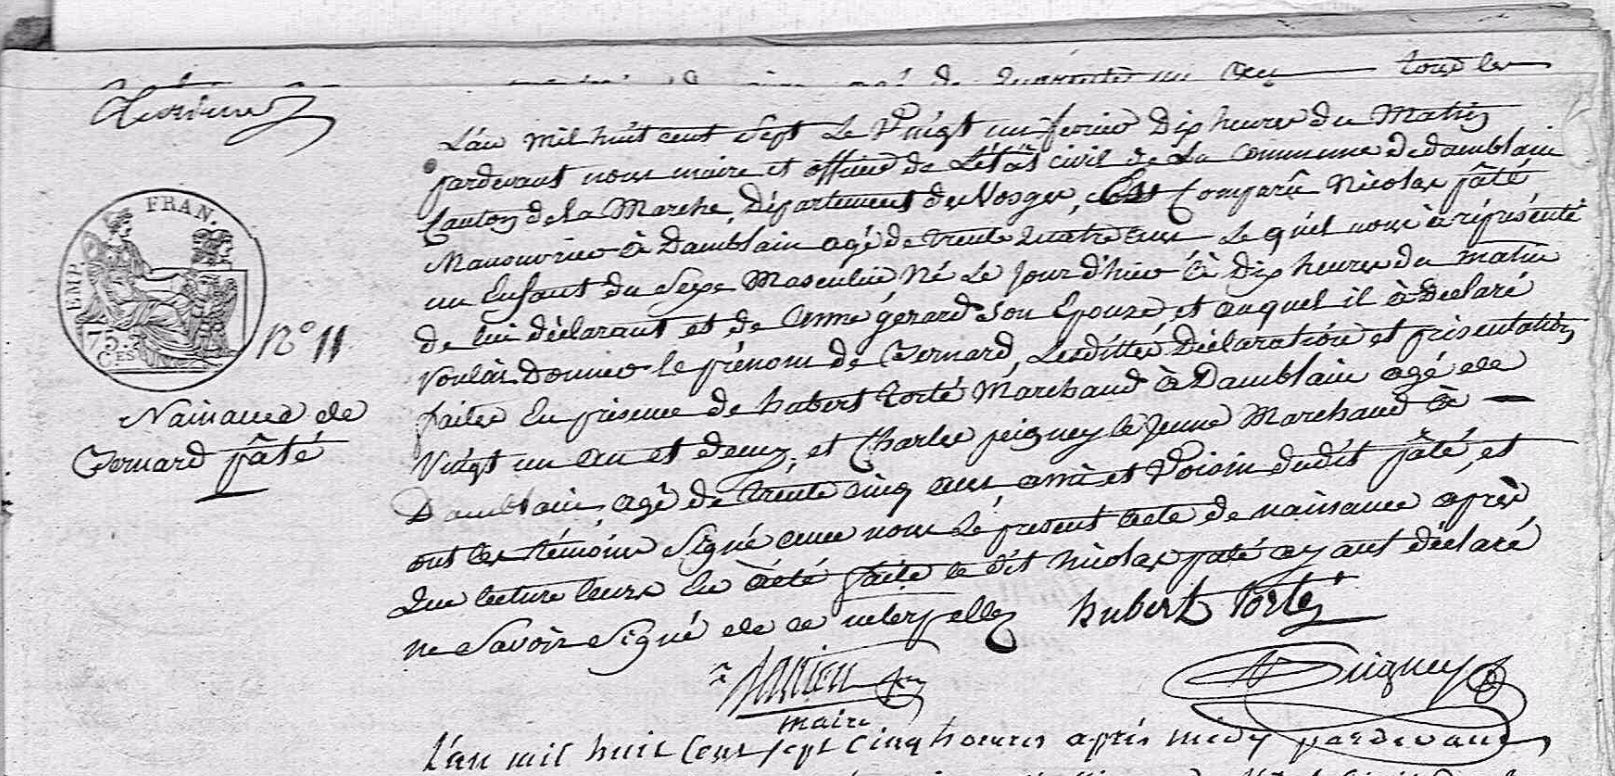 quarante un ans tous les
FRAN.
EMP.
75.
C.ES
N° 11
Naissance de
Bernard pâté
L'an mil huit cent sept Le Vingt un fevrier Dix heures du Matin
pardevant nous maire et officier de L'état civil de La Commune de damblain
Canton de la Marche, Département des Vosges, est Comparû Nicolas pâté,
Manouvrier à Damblain agé de trente quatre ans Le quel nous à réprésenté
un Enfant du Sexe Masculin Né Le Jour d'hier à Dix heures du matin
de lui déclarant et de Anne gérard son Epouse et auquel il à Déclaré
Vouloir Donner le prénom de Bernard, Lesdittes Déclaration et présentation
faites En présence de hubert torté Marchand à Damblain agé de
Vingt un an et demy, et Charles peigney le Jeune Marchand à —
Damblain, agé de trente cinq ans ami et Voisin dudit pâté, et
ont les témoins Signé avec nous Le present acte de naissance après
Que lecture leurs En à été faite le dit Nicolas pâté ayant déclaré
ne Savoir Signé de ce interpellé
hubert torté
maire
Peigney
L'an mil huit Cent sept cinq heures après midy pardevant